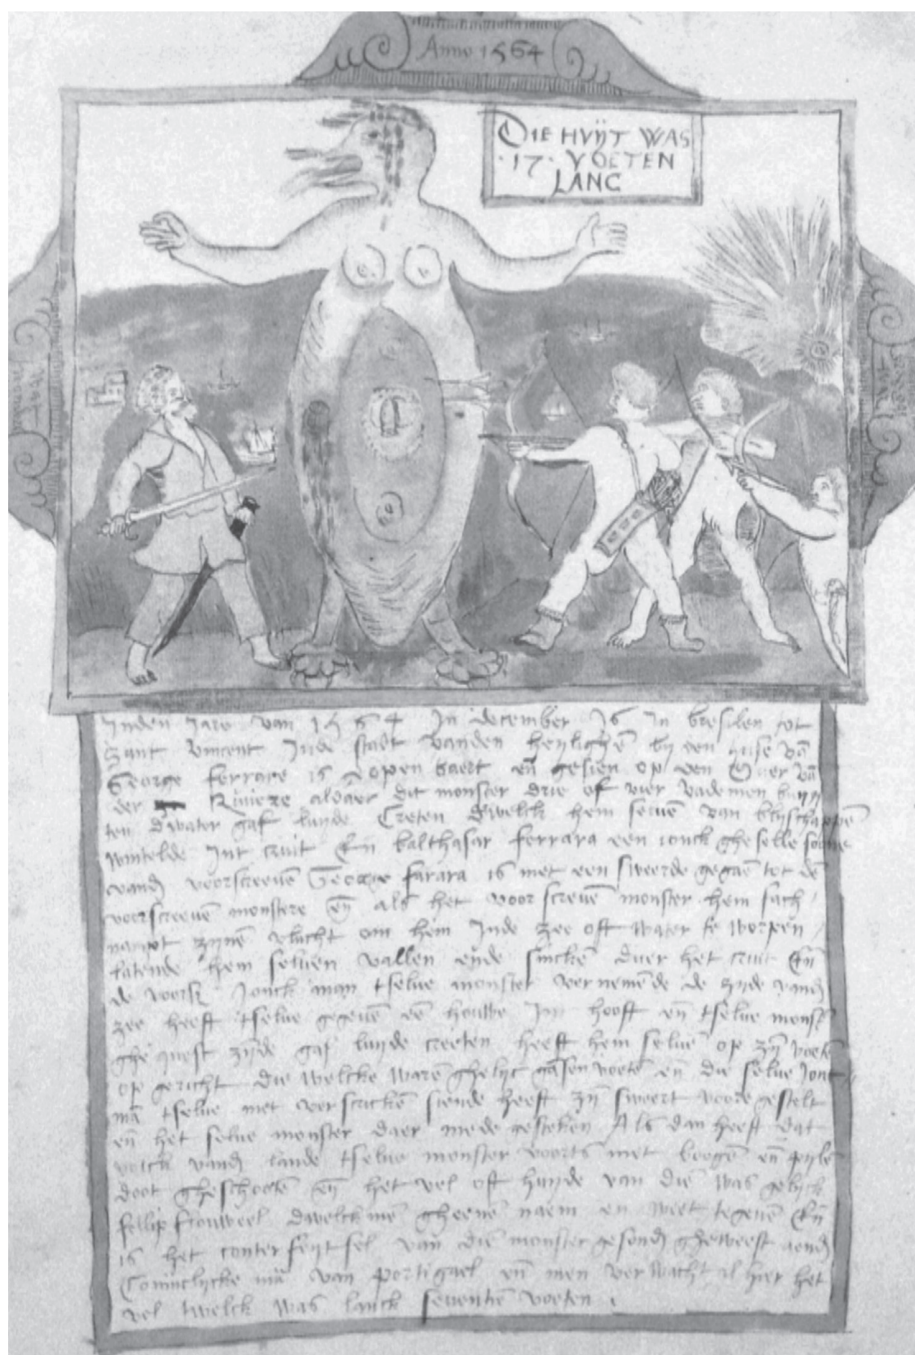 Anno 1564
DIE HVIJT WAS
·17· VOETEN
LANG
Inden Jare van 1564 In december Is In bresilien tot
Sant Vincent Inde stadt vanden heylighen by een huse van
George ferrare is gopen baert en gesien op den Over van
der Riviere aldaer dit monster drie of vier vademen buyten
ten dwater gaf luyde Creten dwelck hem selven van blyschappen
wintelde Int cruit En balthasar ferrara een ionck gheselle sone
vand voorscreven George farara is met een sweerde gegaen tot den
voorscreven monstere en als het voorscreven monster hem sach
nampt zijne vlucht om hem Inde zee oft water te worpen
latende hem selven vallen ende sincken over het cruit En
de voors Jonck man tselve monster vernemende de zyde vand
zee heeft tselve gegeven een houwe In hooft en tselve monster
ghequest zijnde gaf luyde creeten heeft hem selve op zijn voeten
op gericht die welcke waren ghelijc gansen voeten en die selve Jonc
man tselve met verscricken siende heeft zijn sweert voore gestelt
en het selve monster daer mede gesteken Als dan heeft dat
volck vand lande tselve monster voorts met boogen en pijlen
doot gheschoten en het vel oft huyde van dien was gelyck
dwelck men gheenen naem en weet tegeven En
is het conterfeytsel van dien monster gesonden gheweest aend
Conincklycke ma van portigael en men verwacht al hier het
vel twelck was lanck seventien voeten